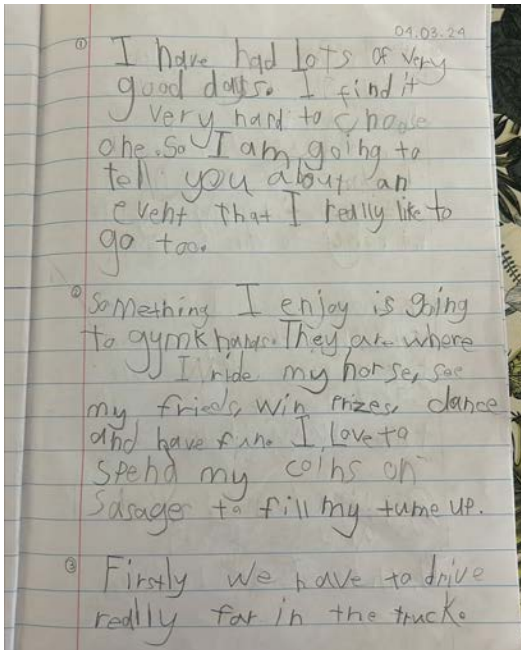 04.03.24
① I have had lots of very
good days. I find it
very hard to choose
one. So I am going to
tell you about an
event that I really like to
go too.
② Something I enjoy is going
to gymkhanas. They are where
I ride my horse, see
my frieds, win prizes, dance
and have fun. I Love to
spend my coins on
Sasages to fill my tume up.
③ Firstly we have to drive
really far in the truck.